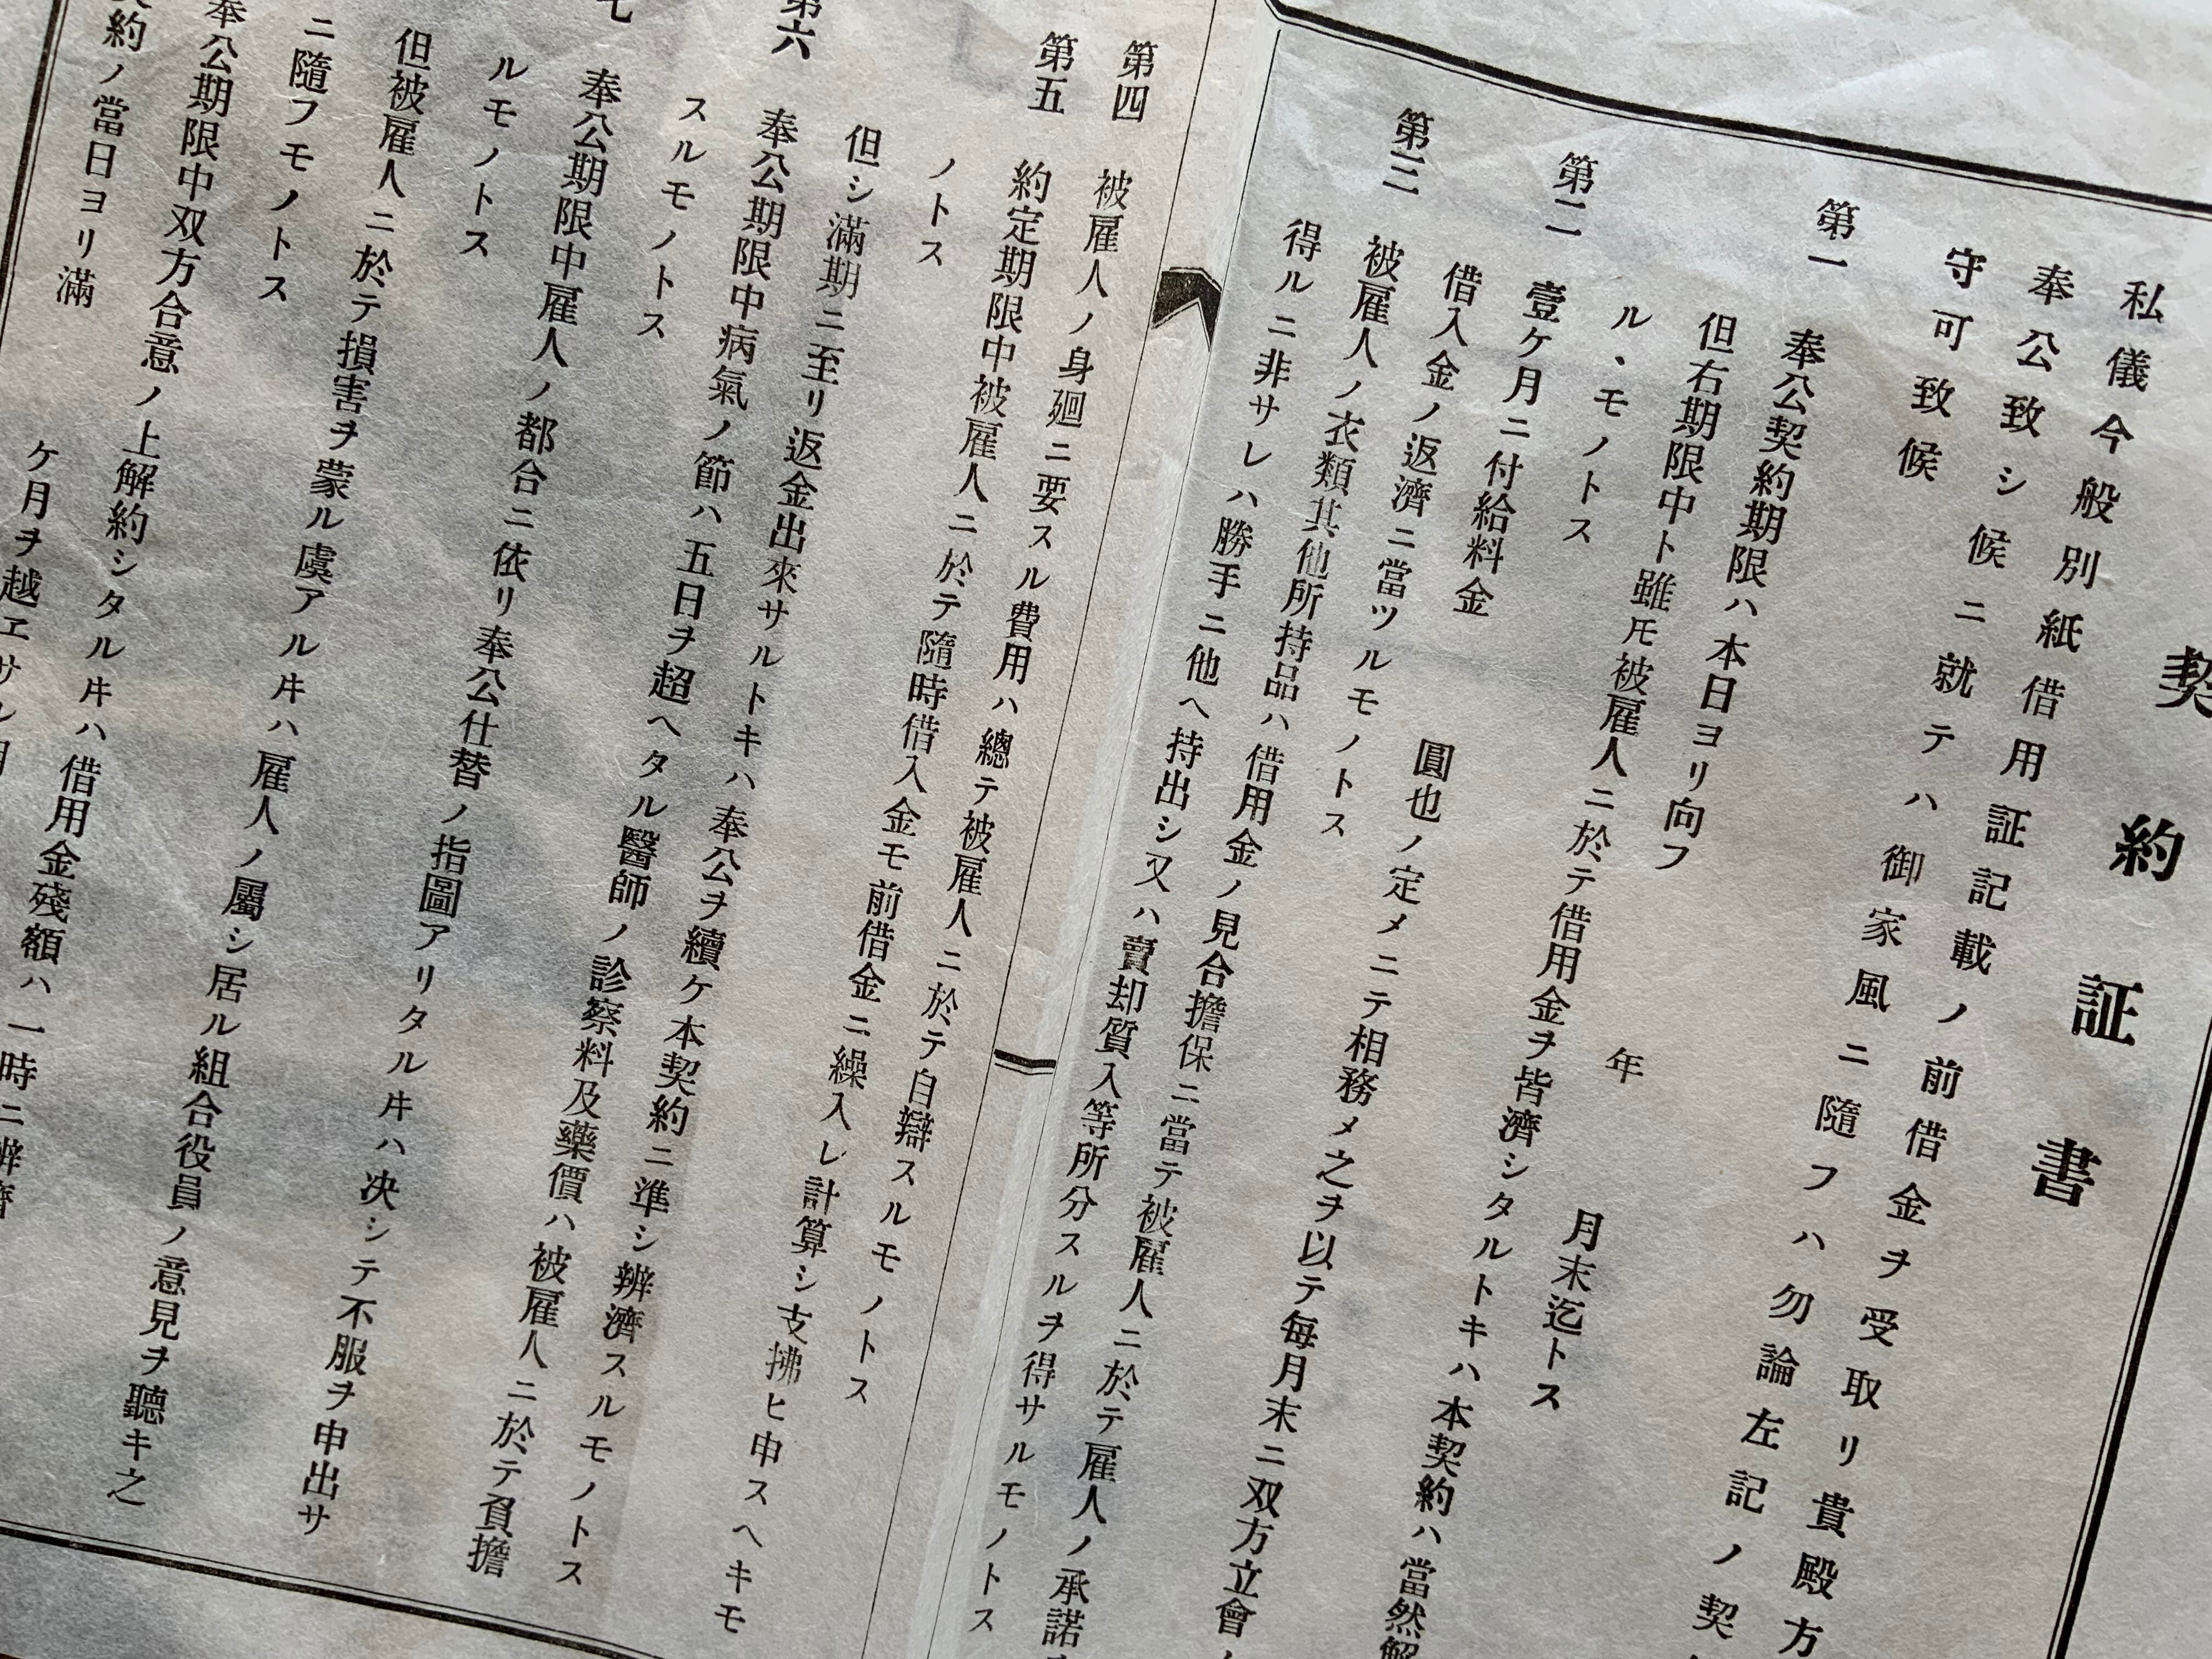 契約証書
私儀今般別紙借用証記載ノ前借金ヲ受取リ貴殿方
奉公致シ候ニ就テハ御家風ニ隨フハ勿論左記ノ契
守可致候
第一 奉公契約期限ハ本日ヨリ向フ 年 月末迄トス
但右期限中ト雖𪜈被雇人ニ於テ借用金ヲ皆濟シタルトキハ本契約ハ當然解
ル、モノトス
第二 壹ケ月ニ付給料金 圓也ノ定メニテ相務メ之ヲ以テ毎月末ニ双方立會ノ
借入金ノ返濟ニ當ツルモノトス
第三 被雇人ノ衣類其他所持品ハ借用金ノ見合擔保ニ當テ被雇人ニ於テ雇人ノ承諾
得ルニ非サレハ勝手ニ他ヘ持出シ又ハ賣却質入等所分スルヲ得サルモノトス
第四 被雇人ノ身廻ニ要スル費用ハ總テ被雇人ニ於テ自辯スルモノトス
第五 約定期限中被雇人ニ於テ隨時借入金モ前借金ニ繰入レ計算シ支拂ヒ申スヘキモ
ノトス
但シ滿期ニ至リ返金出來サルトキハ奉公ヲ續ケ本契約ニ準シ辨濟スルモノトス
第六 奉公期限中病氣ノ節ハ五日ヲ超ヘタル醫師ノ診察料及藥價ハ被雇人ニ於テ負擔
スルモノトス
七 奉公期限中雇人ノ都合ニ依リ奉公仕替ノ指圖アリタル𪜈ハ決シテ不服ヲ申出サ
ルモノトス
但被雇人ニ於テ損害ヲ蒙ル虞アル𪜈ハ雇人ノ屬シ居ル組合役員ノ意見ヲ聽キ之
ニ隨フモノトス
奉公期限中双方合意ノ上解約シタル𪜈ハ借用金殘額ハ一時ニ辨濟
約ノ當日ヨリ滿 ケ月ヲ越エサル